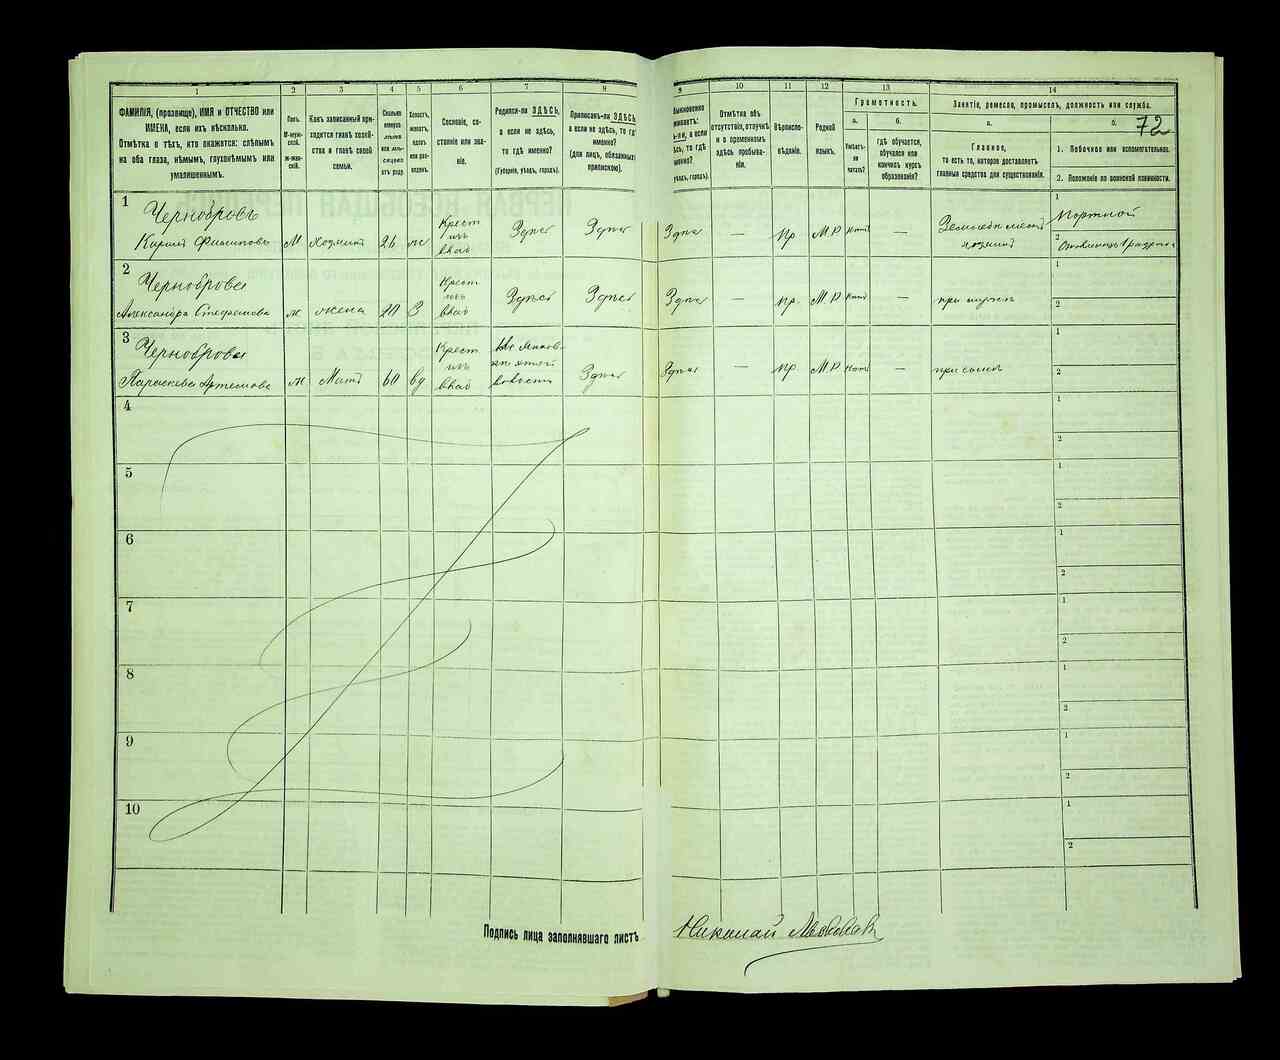 1
2
3
4
5
6
7
8
9
10
11
12
13
14
ФАМИЛІЯ, (прозвище), ИМЯ и ОТЧЕСТВО или
ИМЕНА, если ихъ нѣсколько.
Отмѣтка о тѣхъ, кто окажется: слѣпымъ
на оба глаза, нѣмымъ, глухонѣмымъ или
умалишеннымъ.
Полъ.
М-муж-
ской.
Ж-жен-
скій.
Какъ записанный при-
ходится главѣ хозяй-
ства и главѣ своей
семьи.
Сколько
минуло
лѣтъ
или мѣ-
сяцевъ
отъ роду.
Холостъ,
женатъ,
вдовъ
или раз-
веденъ.
Сословіе, со-
стояніе или зва-
ніе.
Родился-ли ЗДѢСЬ,
а если не здѣсь,
то гдѣ именно?
(Губернія, уѣздъ, городъ).
Приписанъ-ли ЗДѢСЬ,
а если не здѣсь, то гдѣ
именно?
(для лицъ, обязанныхъ
припискою).
Отмѣтка объ
отсутствіи, отлучкѣ
и о временномъ
здѣсь пребыва-
ніи.
Вѣроиспо-
вѣданіе.
Родной
языкъ.
Грамотность.
а.
Умѣетъ-
ли
читать?
б.
Гдѣ обучается,
обучался или
кончилъ курсъ
образованія?
Занятіе, ремесло, промыселъ, должность или служба.
а.
Главное,
то есть то, которое доставляетъ
главныя средства для существованія.
б.
72
1. Побочное или вспомогательное.
2. Положеніе по воинской повинности.
1
Чернобровъ
Кирилъ Филиповъ
М
хозяинъ
26
же
Крест
изъ
влад
Здѣсь
Здѣсь
Здѣсь
—
Пр
М.Р
нѣтъ
—
хозяинъ
1
Портной
2
2
Черноброва
Александра Стефанова
ж
жена
20
З
Крест
изъ
влад
Здѣсь
Здѣсь
Здѣсь
—
пр.
М.Р
нѣтъ
—
при мужѣ
1
2
3
Черноброва
Параскева Артемова
ж
Мать
60
вд
Крест
изъ
влад
Здѣсь
Здѣсь
—
пр
М.Р
нѣтъ
—
при сынѣ
1
2
4
1
2
5
1
2
6
1
2
7
1
2
8
1
2
9
1
2
10
1
2
Подпись лица заполнявшаго листъ
Николай